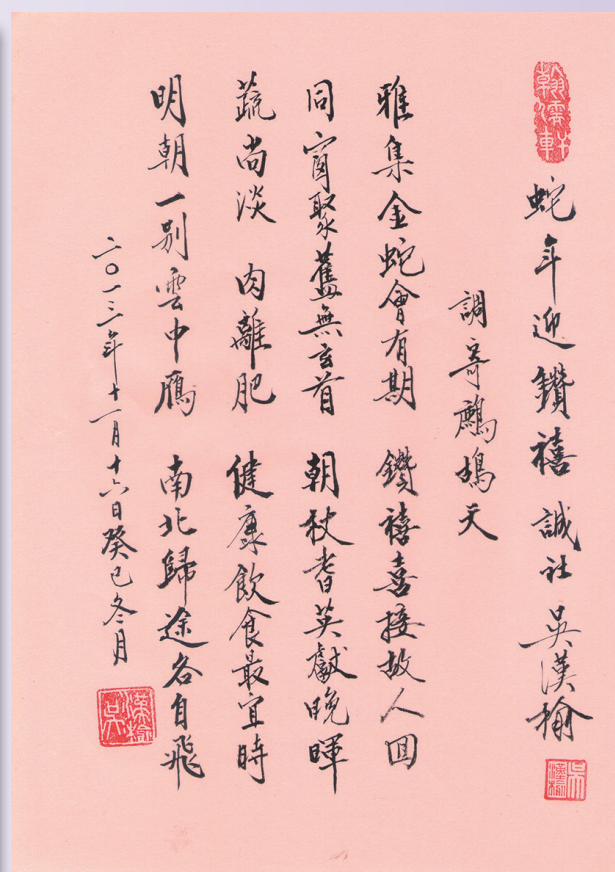 蛇年迎鑽禧 誠社 吳漢榆
調寄鷓鴣天
雅集金蛇會有期 鑽禧喜接故人回
同窗聚舊無玄首 朝杖耆英獻晚暉
蔬尚淡 肉離肥 健康飲食最宜時
明朝一別雲中鴈 南北歸途各自飛
二〇一三年十一月十六日癸巳冬月